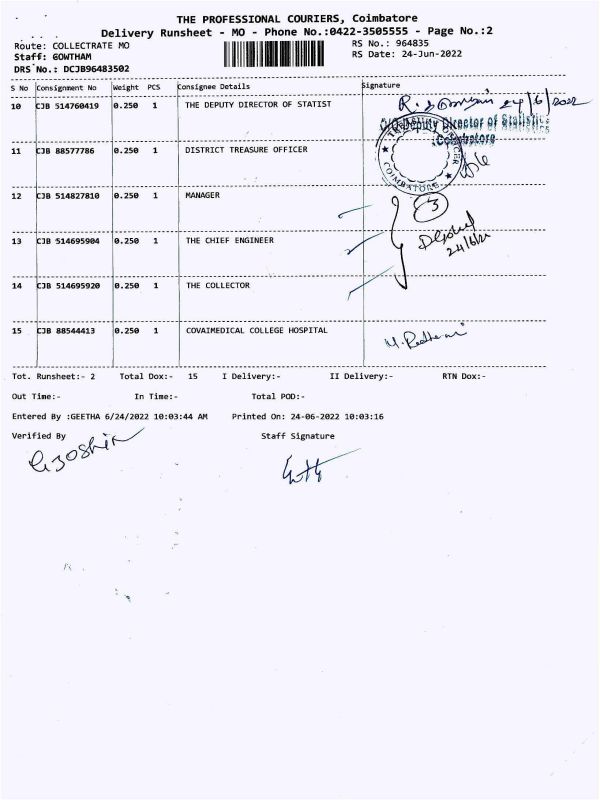 THE PROFESSIONAL COURIERS, Coimbatore
Delivery Runsheet - MO - Phone No.:0422-3505555 - Page No.:2
Route: COLLECTRATE MO RS No.: 964835
Staff: GOWTHAM RS Date: 24-Jun-2022
DRS No.: DCJB96483502
S No Consignment No Weight PCS Consignee Details Signature
10 CJB 514760419 0.250 1 THE DEPUTY DIRECTOR OF STATIST 24/6/2022
Deputy Director of Statistics
Coimbatore
11 CJB 88577786 0.250 1 DISTRICT TREASURE OFFICER
COIMBATORE
12 CJB 514827810 0.250 1 MANAGER
3
13 CJB 514695904 0.250 1 THE CHIEF ENGINEER
24/6/22
14 CJB 514695920 0.250 1 THE COLLECTOR
15 CJB 88544413 0.250 1 COVAIMEDICAL COLLEGE HOSPITAL
Tot. Runsheet:- 2 Total Dox:- 15 I Delivery:- II Delivery:- RTN Dox:-
Out Time:- In Time:- Total POD:-
Entered By :GEETHA 6/24/2022 10:03:44 AM Printed On: 24-06-2022 10:03:16
Verified By Staff Signature